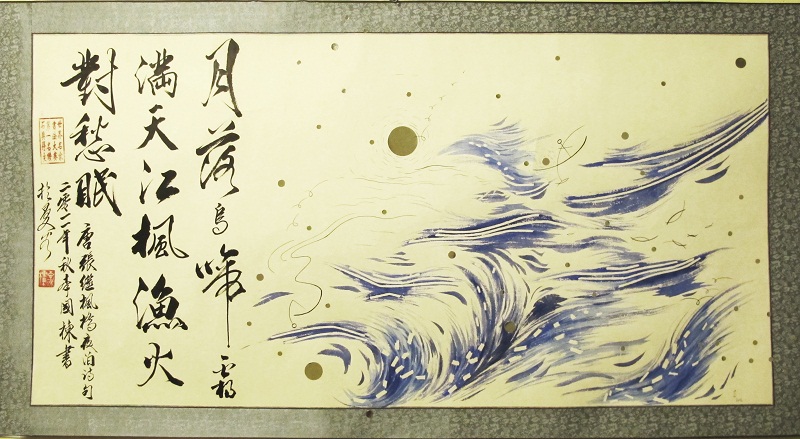 月落烏啼霜
滿天江楓漁火
對愁眠
唐張继楓橋夜泊诗句
二零一一年秋李國棟書
於